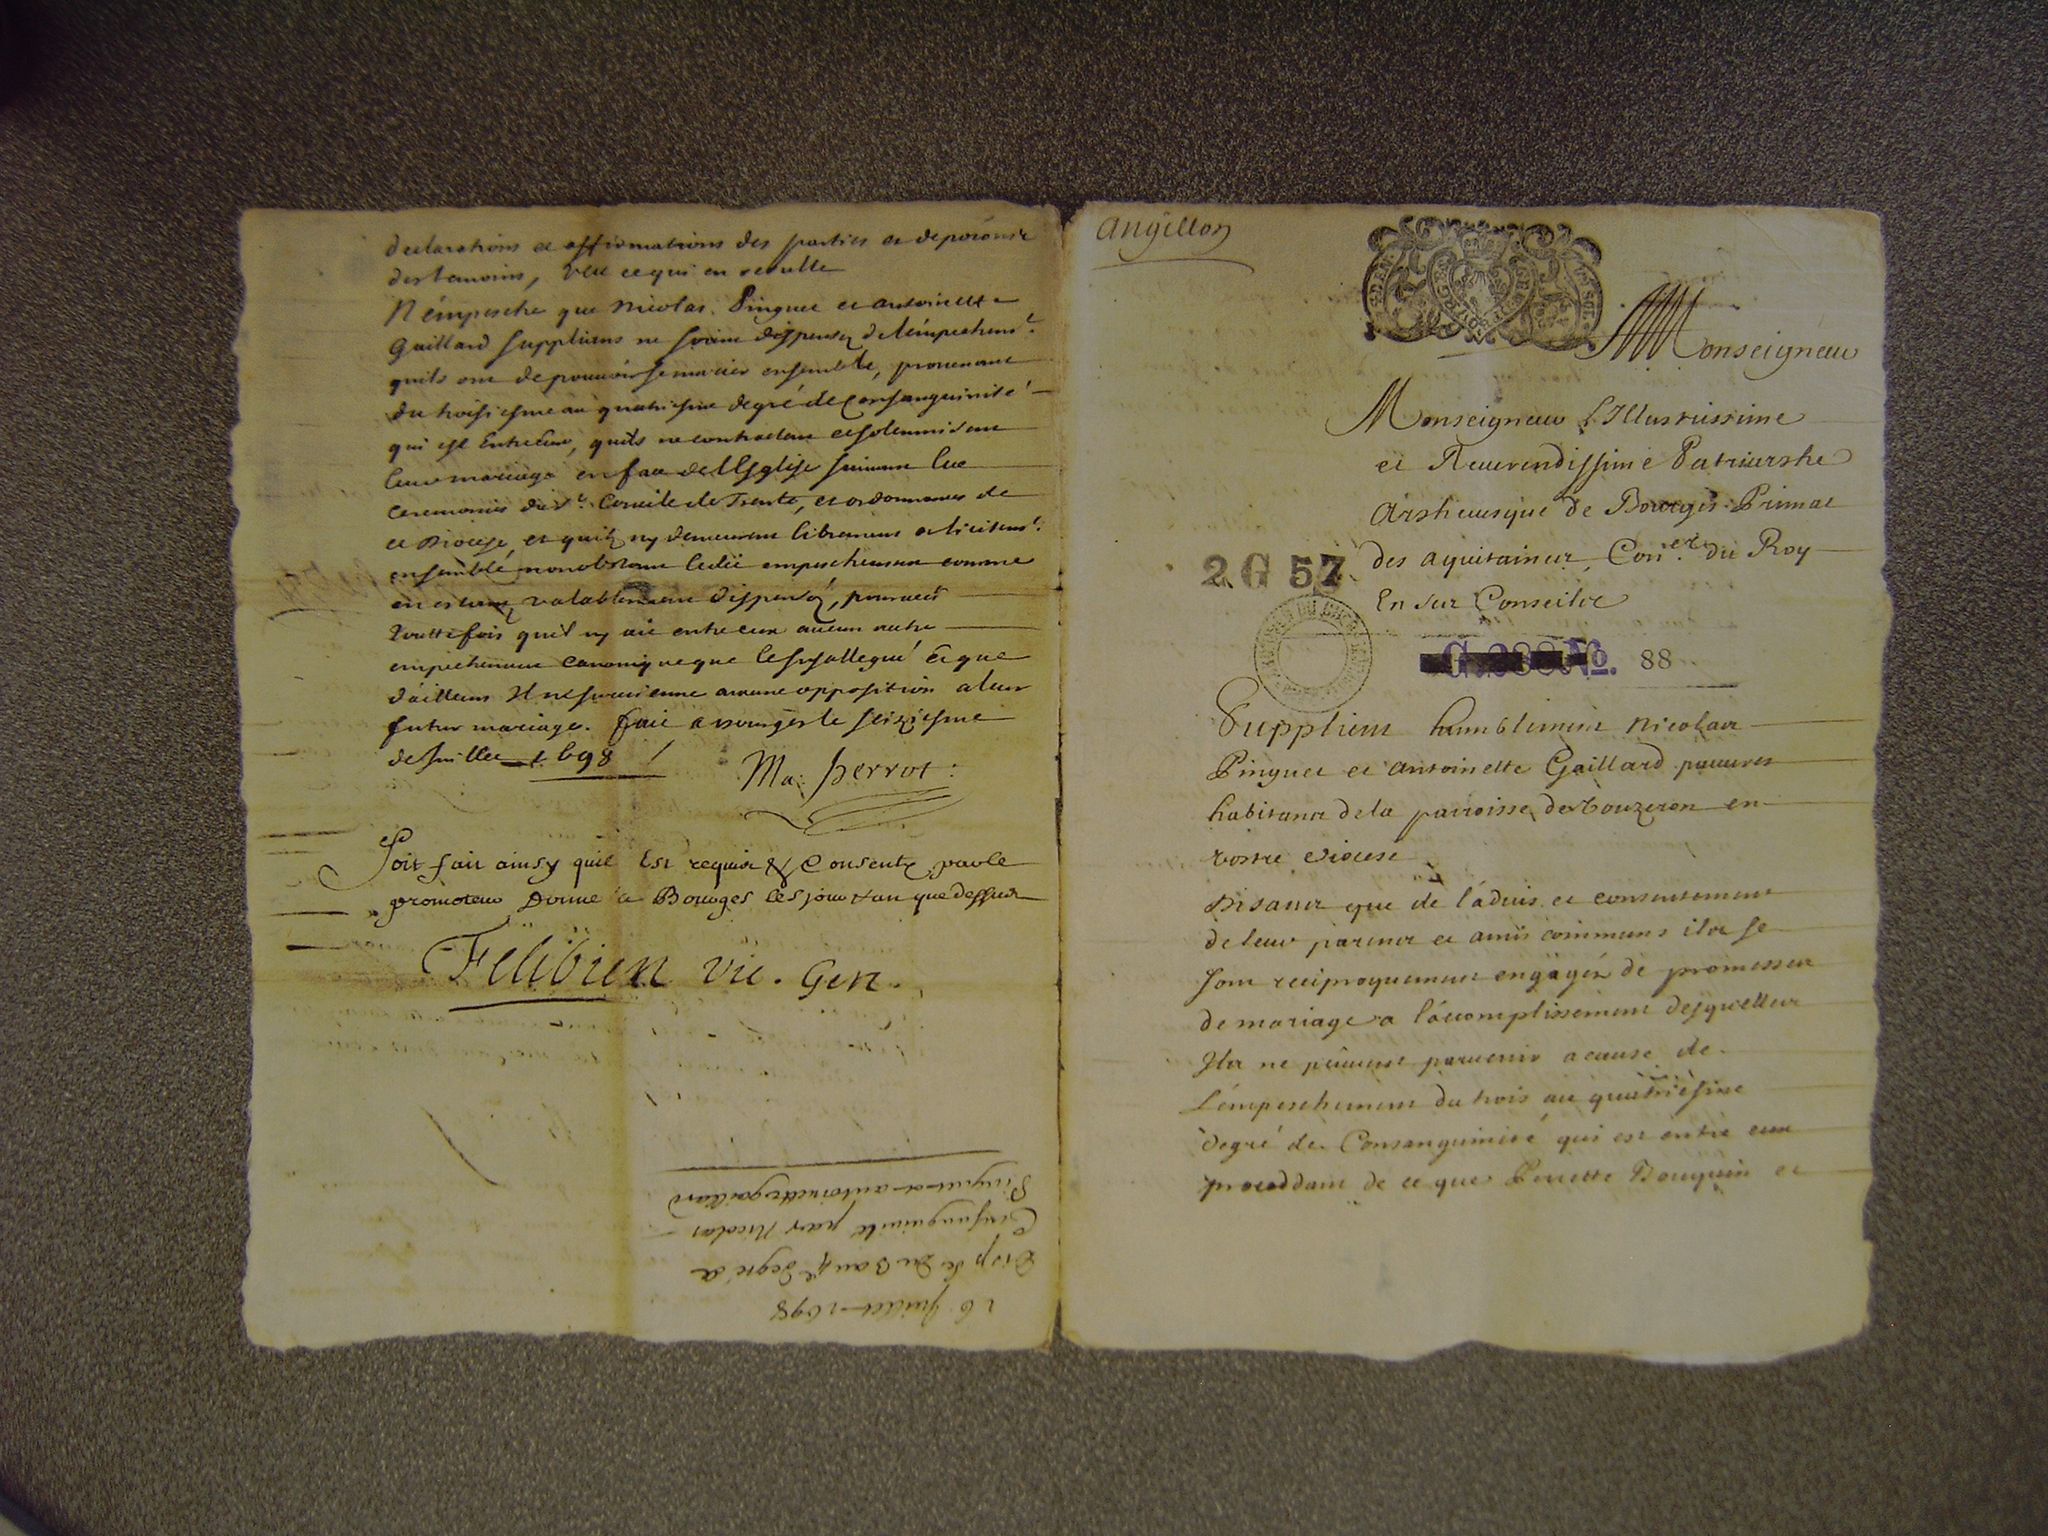 declarations et affirmations des parties et deposons de
des temoins, veu ce qui en resulte
N'émpesche que Nicolas Pinguet et antoinette
Gaillard suppliens ne soient dispensez de lémpechemt.
quils ont de pouvoir se marier ensemble, provenant
du troisiesme au quatriesme degré de Consanguinité
qui est Entre Eux, quils ne contractent et solemnisent
leur mariage en face de l'Esglise suivant les
ceremonies du St. Concile de Trente, et ordonnances de
ce Diocese, et quils ny demeurent librement et licitemt.
ensemble nonobstant ledit empeschement comme
en estant valablement dispensez, pourveu
touttefois quil ny ait entre eux aucun autre
empechement canonique que le susallegué Et que
dailleurs Il ne survienne aucune opposition a leur
futur mariage. fait a bourges le seiziesme
de Juillet 1698
Ma: perrot:
Soit fait ainsy quil Est requis & Consenty par le
promoteur Donné a Bourges les jour & an que dessus
Felibien Vic. Gen.
16 Juillet 1698
Disp de Du 3 au 4e degré de
Consanguinité par Nicolas
Pinguet et antoinette gaillard
Angillon
Monseigneur
Monseigneur L'Illustrissime
et Reverendissime Patriarshe
Arsheuesque de Bourges Primat
des Aquitaines, Coner. du Roy
En ses Conseils
2 G 57
G 288 No. 88
Supplient humblement Nicolas
Pinguet et Antoinette Gaillard pauures
habitans de la parroisse de Vouzeron en
vostre Diocese
Disans que de l'aduis et consentement
de leurs parens et amis communs ils se
sont reciproquement engagéz de promesses
de mariage a l'accomplissement desquelles
Ils ne peuuent paruenir a cause de
L'empeschement du trois au quatriésme
degré de Consanguinité qui est entre eux
proceddant de ce que Perrette Bouquin et